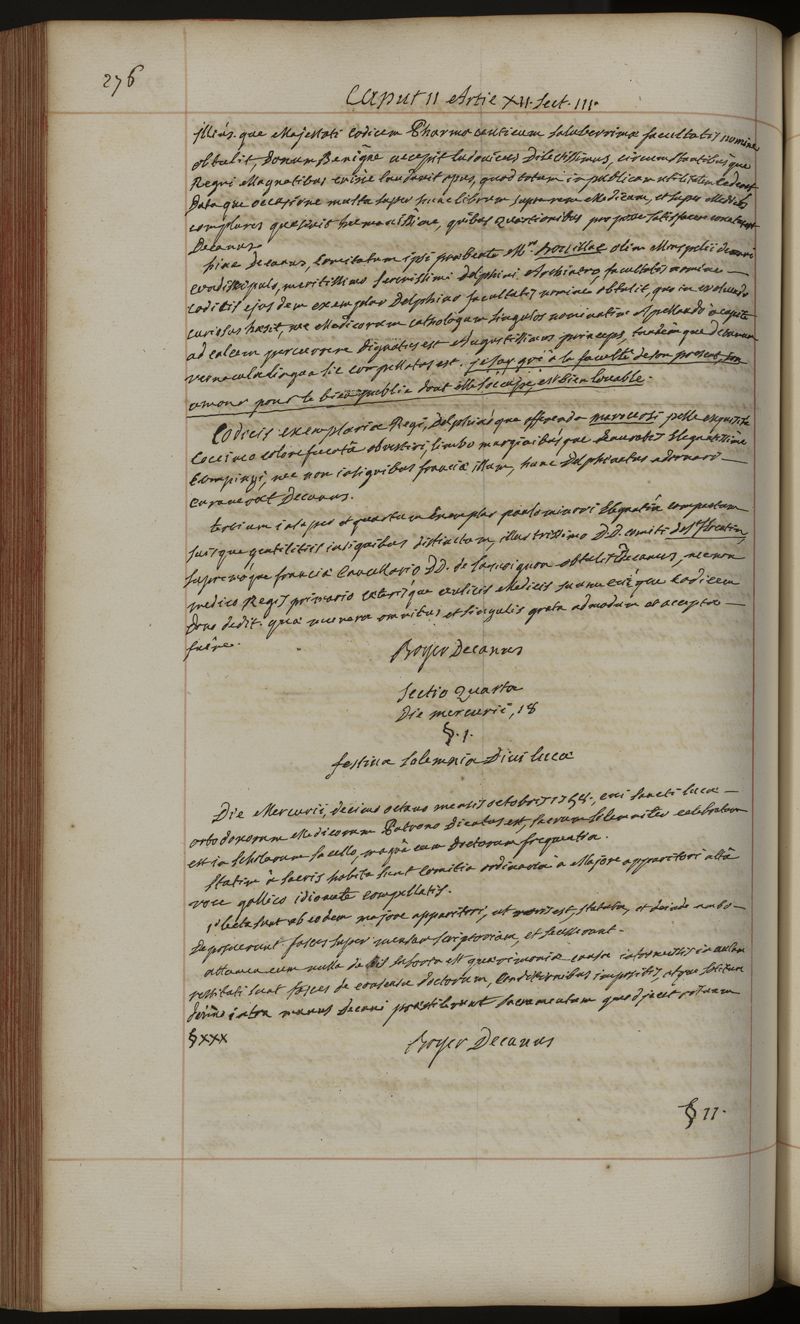 276
Caput II Artic XII. Sect. III.
illius que Majestati Codicem Pharmaceuticum saluberrimæ facultatis nomine
obtulit, Donum Benigne accepit Ludovicus Dilectissimus, circumstantibus que
Regni Magnatibus laudavit opus, quod totum in publicam utilitatem cederet
Data que occasione multa super hunc librum supremum Medicum, et super Medicos
complures quæsivit humanissime, quibus quæstionibus pro posse satisfacere conatus est
Decanus.
hinc Decanus, Comitatum ipsi præbente Mro Bouillac olim Monspelii
condiscipulo, meritissimo serenissimi Delphini Archiatro, facultatis nomine
Codicis ejusdem exemplar Delphino facultatis nomine obtulit, quo in evolvendo
curiosus hæsit, nec Medicorum cathologum singulos nominatim appellando a capite
ad calcem percurrere dignatus est Augustissimus princeps, tandemque Decanum
vernacula lingua sic compellatus est. je say gré à la faculté de son present, son
amour pour le bien public dont elle s'occupe, est bien louable.
Codicis exemplaria Regi, Delphinoque offerenda maroccosi pelle exquisite
Coccineo colore fucatâ obvestiri, limbo marginibusque deauratis Elegantissime
compingi, nec non insignibus franciæ illum, hunc Delphinatus adornari
curaverat Decanus.
tertium insuper et quartum Exemplar paulo minori Elegantiâ compactum
suisque gentilitiis insignibus distinctum, illustrissimo D.D. comiti de St florentin,
supremoque franciæ Cancellario D.D. de Lamoignon obtulit Decanus, nec non
medico Regis primario cæterisque aulicis Medicis suum cuique Codicem
dono dedit. quæ munera omnibus et singulis grata admodum et accepta
fuêre.
Boyer Decanus
Sectio Quarta
Die mercurii, 18
§. 1.
festiva solemnia Divi lucæ
Die Mercurii, decimo octavo mensis octobris 1758, cui sancti lucæ
ortodoxorum Medicorum Patrono Dicatus est, sacrum solemniter celebratum
est in scholarum sacello, magnâ cum doctorum frequentia.
statim à sacris habita sunt Comitia ordinaria à Majore apparitori altâ
voce gallico idiomate compellatis.
1° lecta sunt ab eodem majore apparitori, ut moris est, statuta, et deinde ambo
deposuerunt fasces super mensam scriptoriam, et secesserunt.
attamen cum nulla de his suborta est quærimonia causa intromissis in aulam
restituti sunt fasces de consensu doctorum, Conditionibus impositis, atque solitum
denuo intra manus Decani præstiterunt sacramentum quod jacet
§ XXX
Boyer Decanus
§ II.